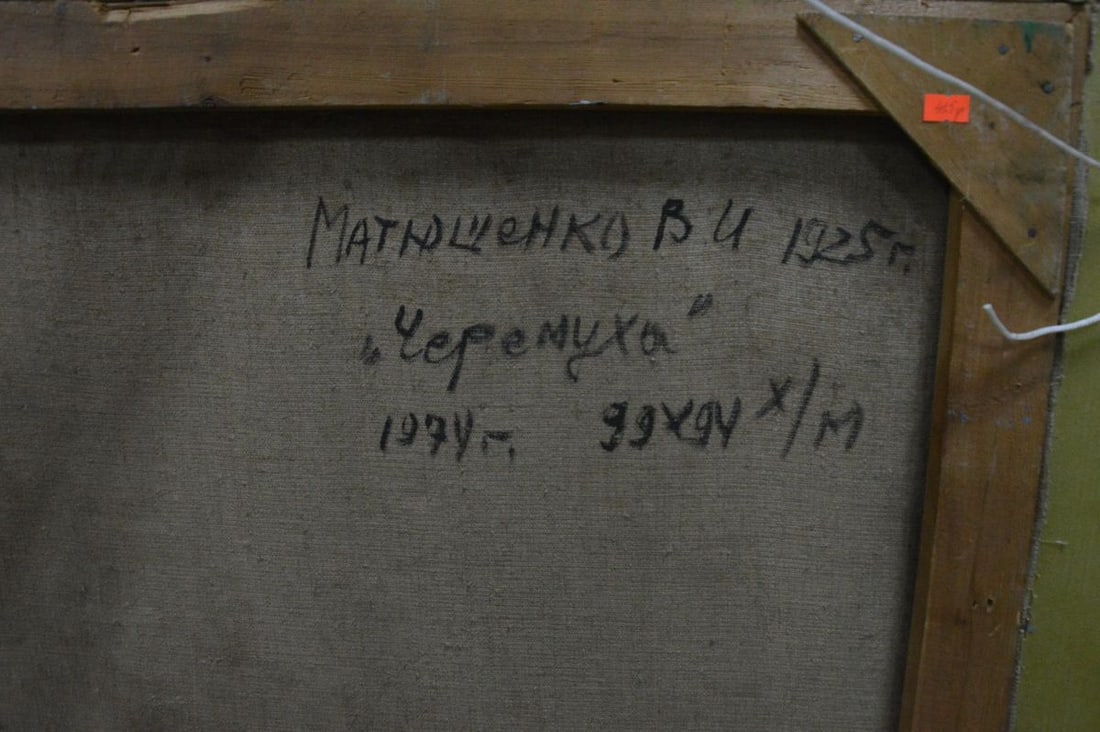 МАТЮЩЕНКО В И 1925 г.
„Черемуха"
1974 г. 99х94 х/м